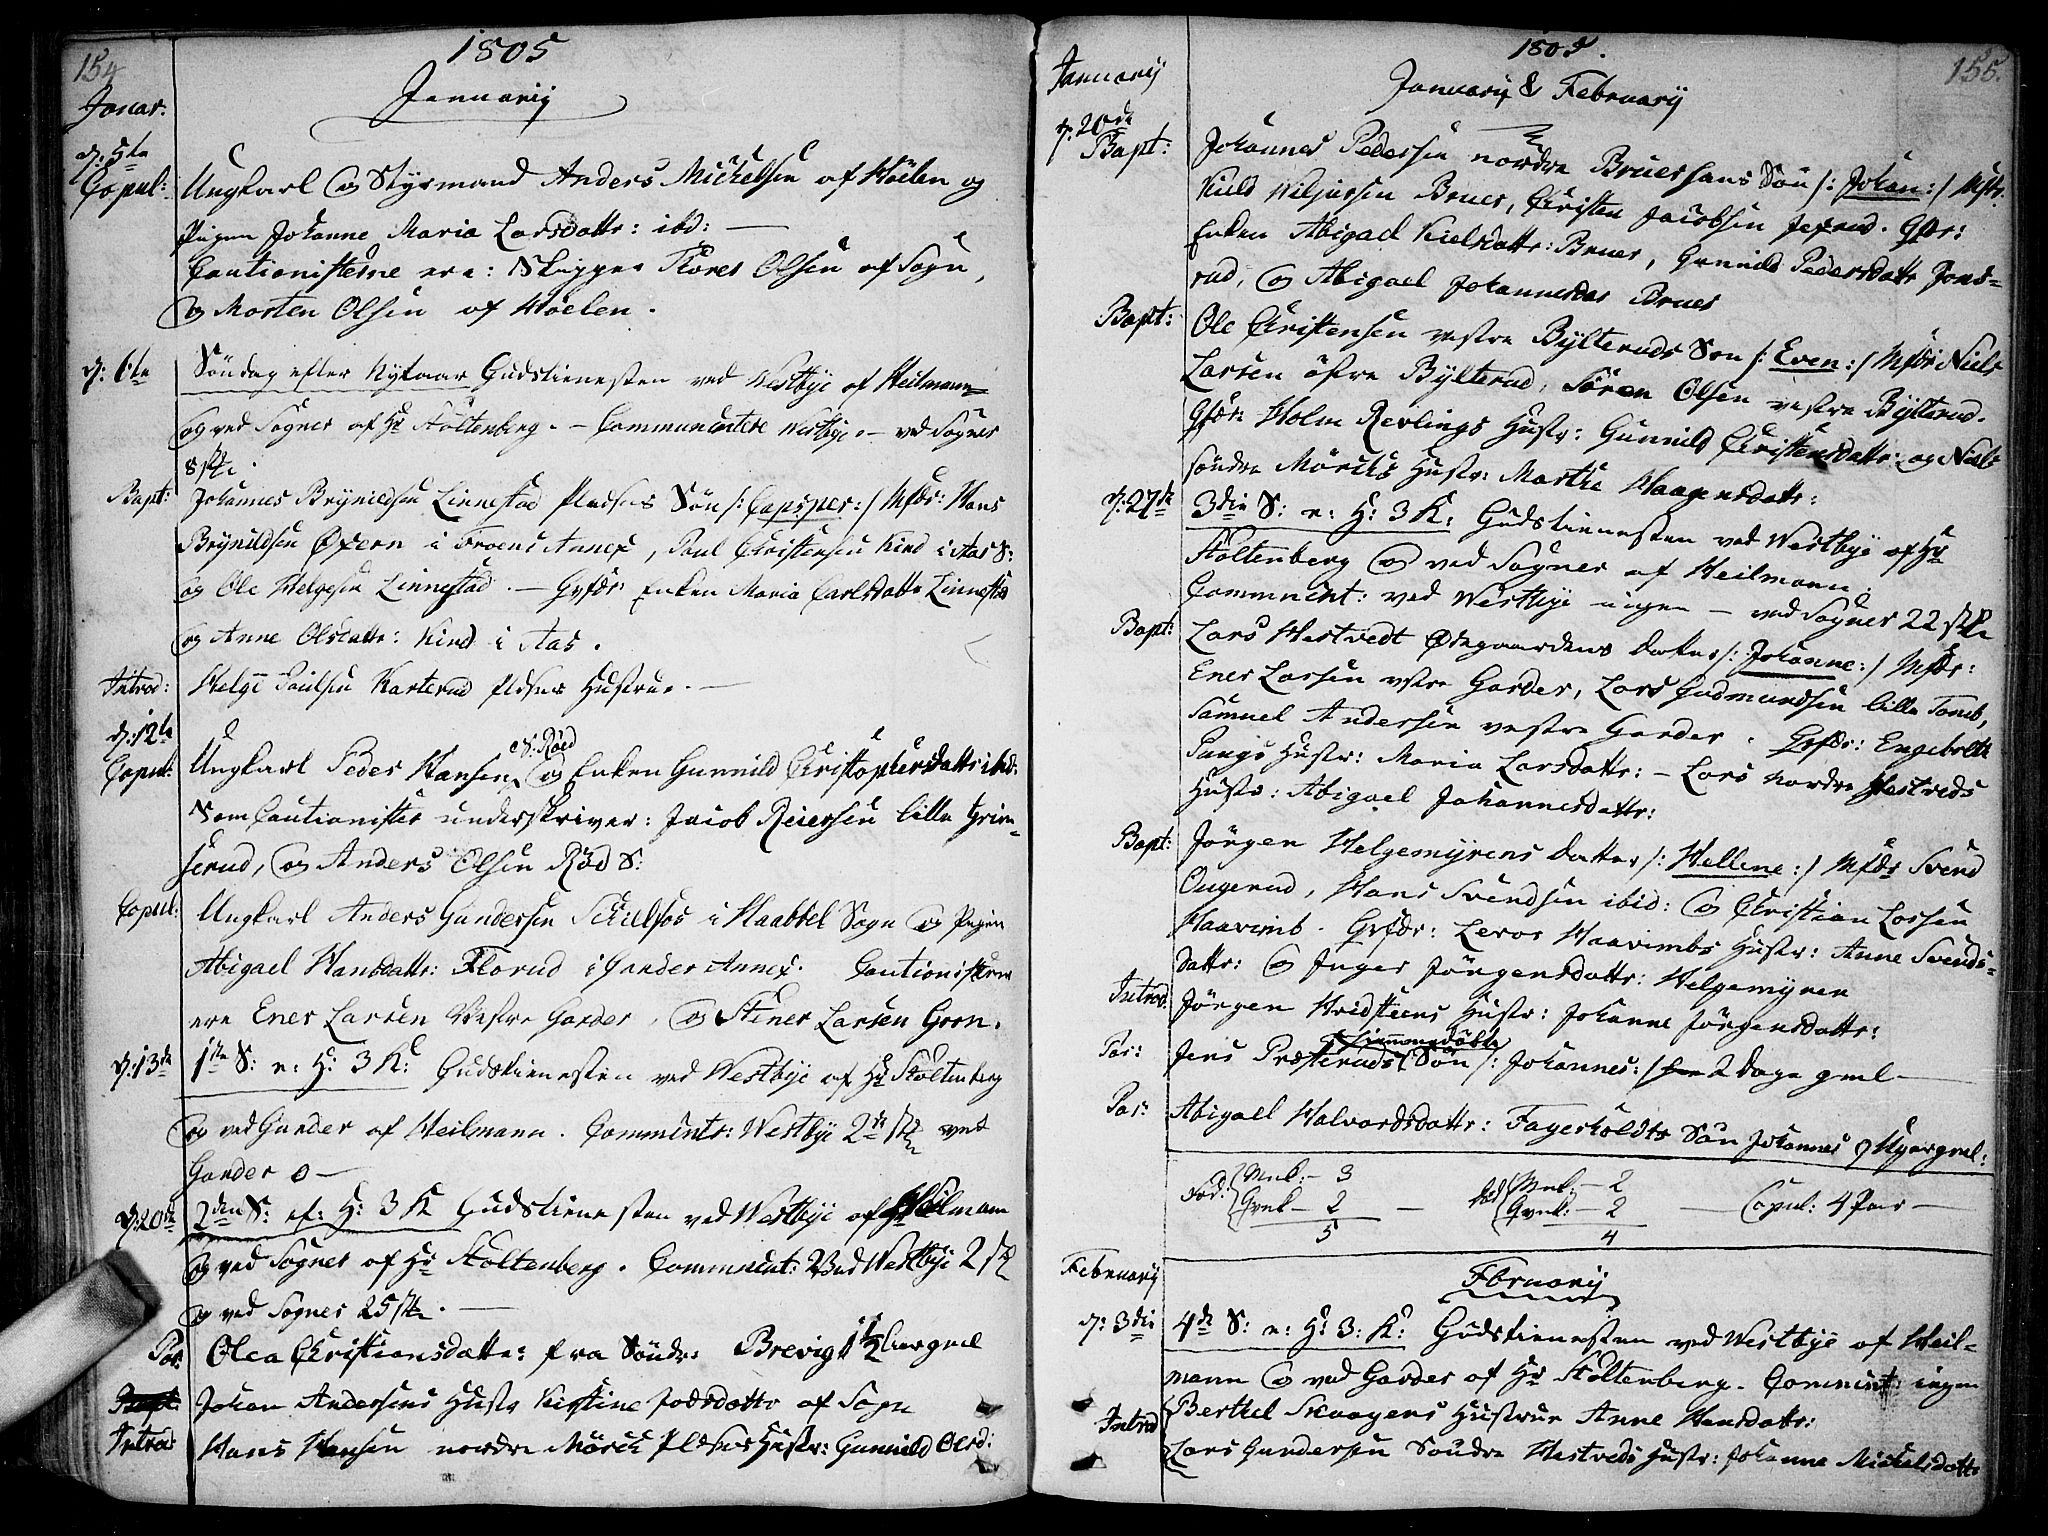 154
1805
Januarij
Januar:
d: 5te
Copul:
Ungkarl og Styrmand Anders Michelsen af Hoelen og
Pigen Johanne Maria Larsdattr: ibd:
Cautionisterne ere: Skipper Tores Olsen af Sogn,
og Morten Olsen af Hoelen.
d: 6te
Söndag efter Nytaar Gudstienesten ved Westbye af Heilmann
og ved Sogner af Hr Stoltenberg. - Communicntere Westbye - ved Sogner
8 stk.
Bapt: Johannes Brynildsen Linnestad Pladsens Sön /: Caspser :/ Mfdr: Hans
Brynildsen Øxern i Froens Annex, Poul Christensen Kind i Aas S:
og Ole Helgesen Linnestad. - Qvfdr: Enken Maria Carlsdattr Linnestad
og Anne Olsdattr: Kind i Aas.
Introd: Helge Poulsen Karterud Pldsens Hustrue. -
d: 12te
Copul: Ungkarl Peder Hansen S: Röed og Enken Gunnild Christophersdattr ibd:
Som Cautionister underskriver: Jacob Reiersen lille Grim-
serud, og Anders Olsen Röd S:
Copul: Ungkarl Anders Gundersen Skulfos i Haabbel Sogn og Pigen
Abigael Hansdattr: Florud i Garder Annex. Cautionisterne
ere Ener Larsen Vestre Garder, og Stener Larsen Groen.
d: 13de 1ste S: e: H: 3 K: Gudstienesten ved Westbye af Hr Stoltenberg
og ved Garder af Heilmann. Commcntr: Westbye 2de stk ved
Garder 0 -
d: 20de 2den S: ef: H: 3 K Gudstienesten ved Westbye af Heilmann
og ved Sogner af Hr Stoltenberg. Commcnt: Ved Westbye 2 stk
og ved Sogner 25 stk. -
Olea Christiansdattr: fra Söndr: Brevig 1 1/2 Aar gml
Johan Andersens Hustr Kirstine Joersdattr af Sogn
Introd: Hans Hansen nordre Mörck Pldsens Hustr: Gunnild Olsd:
155.
1805.
Januarij & Februarij
Januarij
d: 20de
Bapt: Johannes Pedersen nordre Bruersans Sön /: Johan :/ Mfdr:
Kield Weljersen Bruer, Christen Jacobsen Jexrud. Qfdr:
Enken Abigael Kielsdattr: Bruer, Gunnild Pedersdattr Jons-
rud, og Abigael Johannesdar Bruer
Bapt: Ole Christensen vestre Bylteruds Sön /: Even :/ Mfdr Niels
Larsen öfre Bylterud, Sören Olsen vestre Bylterud.
Qfdr: Holm Revlings Hustr: Gunnild Christensdattr: og Niels
söndre Mörchs Hustr: Marthe Haagensdattr:
d: 27de 3die S: e: H: 3 K: Gudstienesten ved Westbye af Hr
Stoltenberg og ved Sogner af Heilmann.
Commnicnt: ved Westbye ingen - ved Sogner 22 stk
Bapt: Lars Hestvedt Ødegaardens Datter /: Johanne :/ Mfdr:
Ener Larsen vstre Garder, Lars Gudmundsen lille Tomb,
Samuel Andersen vestre Garder. Qvfdr: Engebrett
Pungs Hustr: Maria Larsdattr: - Lars nordre Hestveds
Hustr: Abigael Johannesdattr:
Bapt: Jörgen Helgemyrens Datter /: Hellene :/ Mfdr Svend
Ougerud, Hans Svendsen ibid: og Christian Larsen
Haavimb. Qvfdr: Levor Haavimbs Hustr: Anne Svends-
dattr: og Inger Jörgensdattr: Helgemyren
Introd: Jörgen Hvidsteens Hustr: Johanne Jörgensdattr:
Jens Presteruds Sön /: Johannes :/ 2 Dage gml -
Abigael Halvordsdattr: Fagerholdts Sön Johannes 9 Mgr gml:
Föd: Mnk: - 3
Qvnk - 2
5
död Mnk: - 2
Qvnk: - 2
4
Copul: 4 Par -
Februarij
Fbruarij
d: 3die 4de S: e: H: 3: K: Gudstienesten ved Westbye af Heil-
mann og ved Garder af Hr Stoltenberg. Commcnt ingen
Introd Berthel Skougens Hustrue Anne Hansdattr:
Lars Gundersen Söndre Hestveds Hustr: Johanne Michelsdattr